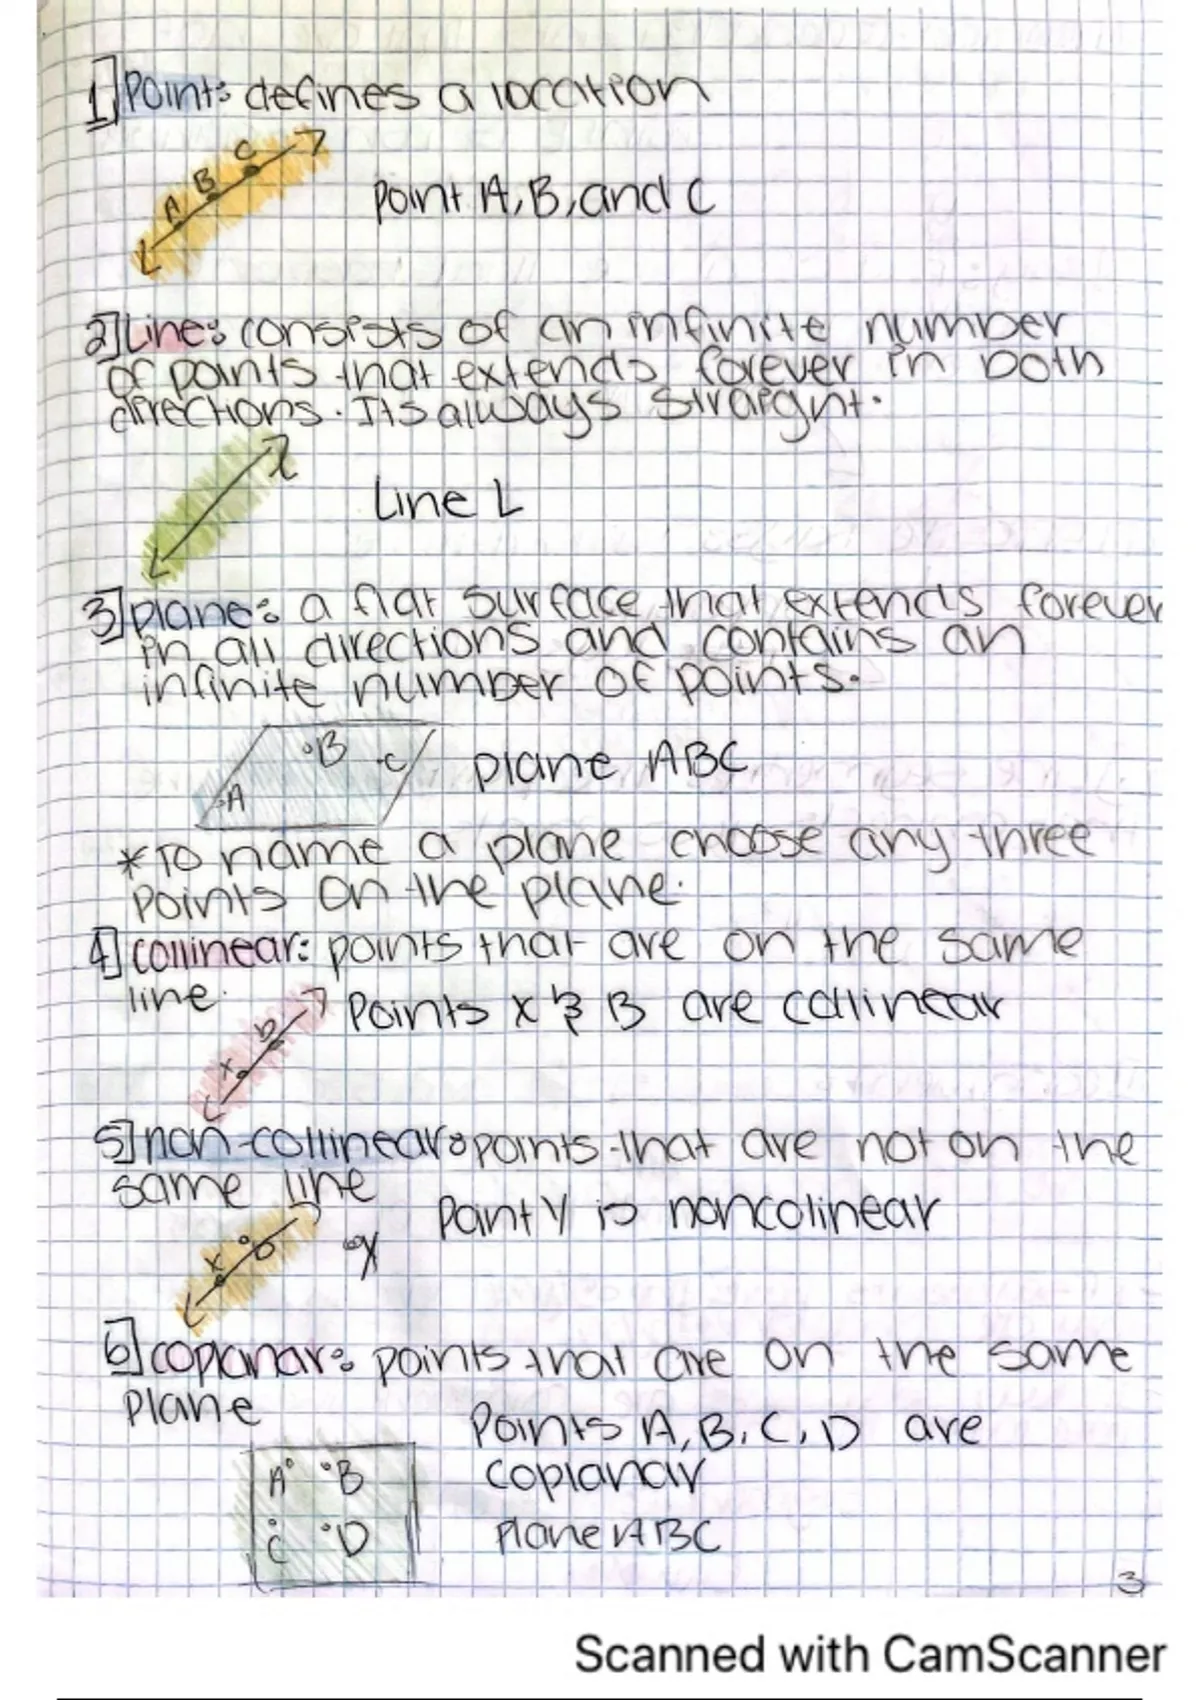 1] Point: defines a location
A B C
Point A, B, and C
2] Line: consists of an infinite number
of points that extends forever in both
directions. Its always straight.
l
Line L
3] plane: a flat surface that extends forever
in all directions and contains an
infinite number of points.
B
C
A
plane ABC
* To name a plane choose any three
points on the plane.
4] collinear: points that are on the same
line.
Points x & B are collinear
x b
5] non-collinear: points that are not on the
same line
Point Y is noncolinear
x b Y
6] coplanar: points that are on the same
plane
Points A, B, C, D are
coplanar
A B
C D
plane ABC
3
Scanned with CamScanner